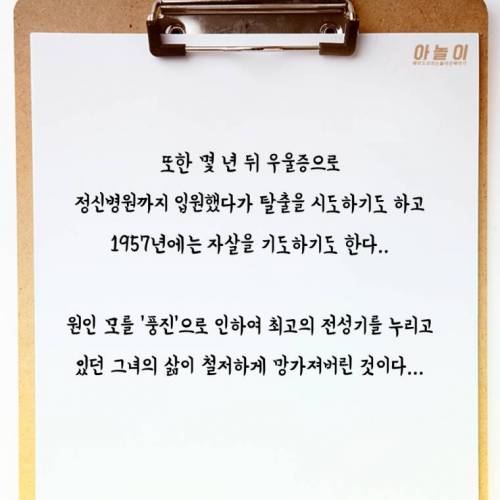 아놀이
또한 몇 년 뒤 우울증으로
정신병원까지 입원했다가 탈출을 시도하기도 하고
1957년에는 자살을 기도하기도 한다..
원인 모를 '풍진'으로 인하여 최고의 전성기를 누리고
있던 그녀의 삶이 철저하게 망가져버린 것이다...